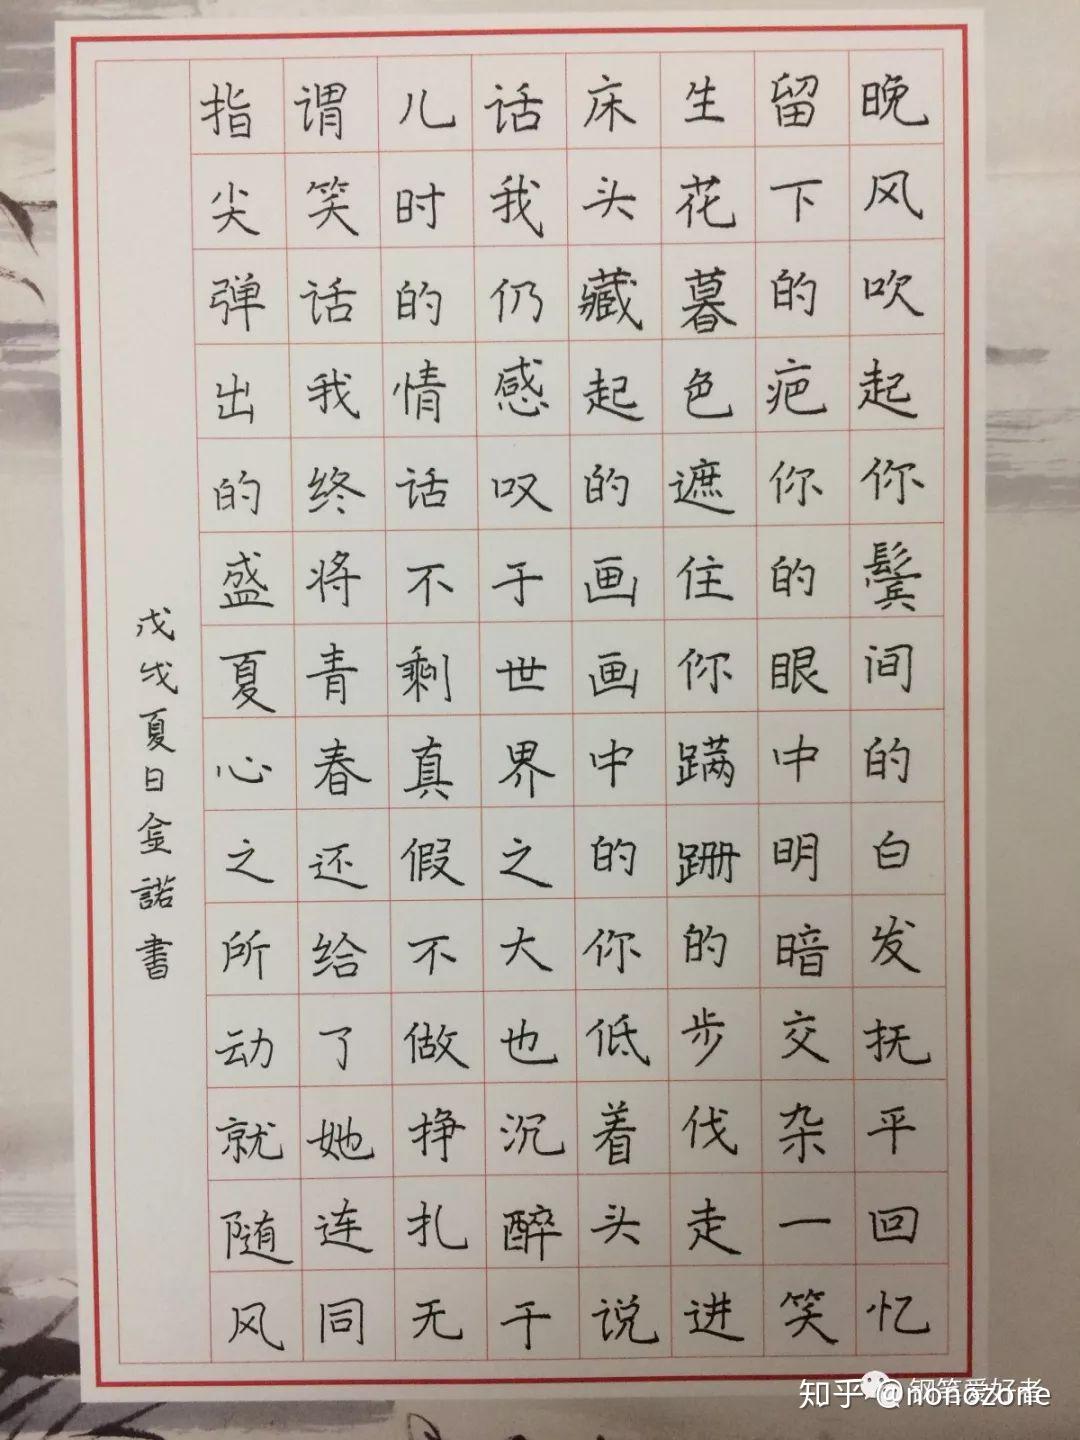 晚风吹起你鬓间的白发抚平回忆
留下的疤你的眼中明暗交杂一笑
生花暮色遮住你蹒跚的步伐走进
床头藏起的画画中的你低着头说
话我仍感叹于世界之大也沉醉于
儿时的情话不剩真假不做挣扎无
谓笑话我终将青春还给了她连同
指尖弹出的盛夏心之所动就随风
戊戌夏日金諾書
钢笔爱好者
知乎 @nonozone